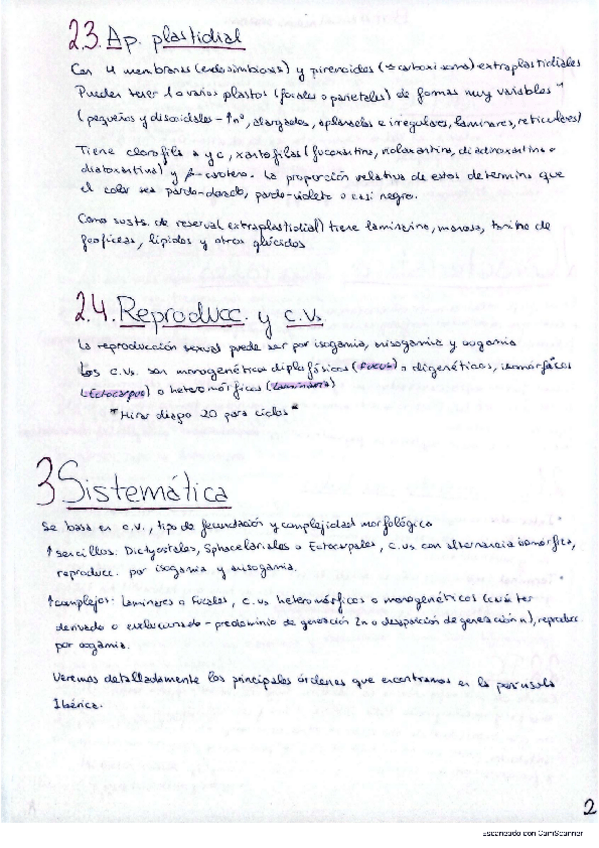 2.3. Ap. plastidial
Con 4 membranas (endosimbiosis) y pirenoides (≈carboxisoma) extraplastidiales
Pueden tener 1 o varios plastos (focales o parietales) de formas muy variables
(pequeños y discoidales - ↑nº, alargados, aplanados e irregulares, laminares, reticulares)
Tiene clorofila a y c, xantofilas (fucoxantina, violaxantina, diadinoxantina o
diatoxantina) y β-caroteno. La proporción relativa de estos determina que
el color sea pardo-dorado, pardo-violeta o casi negro.
Como susts. de reserva (extraplastidial) tiene laminarina, manosa, tanino de
feofíceas, lípidos y otros glúcidos
2.4. Reproducc. y c.vs.
La reproducción sexual puede ser por isogamia, anisogamia y oogamia
Los c.vs. son monogenéticos diplofásicos (Fucus) o digenéticos, isomórficos
(Ectocarpus) o heteromórficos (Laminaria)
*Mirar diapo 20 para ciclos*
3 Sistemática
Se basa en c.v., tipo de fecundación y complejidad morfológica
↑sencillos: Dictyotales, Sphacelariales o Ectocarpales, c.vs con alternancia isomórfica,
reproducc. por isogamia y anisogamia.
↑complejos: Laminares o Fucales, c.vs heteromórficos o monogenéticos (carácter
derivado o evolucionado - predominio de generación 2n o desaparición de generación n), reproducc.
por oogamia.
Veremos detalladamente los principales órdenes que encontramos en la península
Ibérica.
2
Escaneado con CamScanner